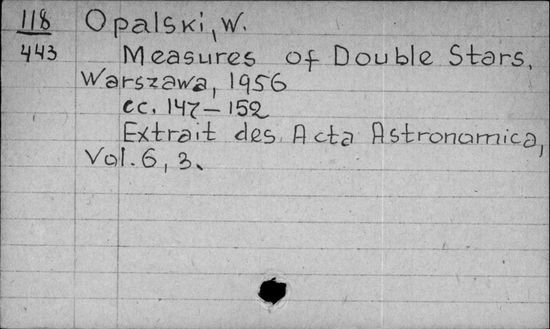 118 Opalski, W.
443 Measures of Double Stars.
Warszawa, 1956
cc. 147–152
Extrait des Acta Astronomica,
Vol. 6, 3.